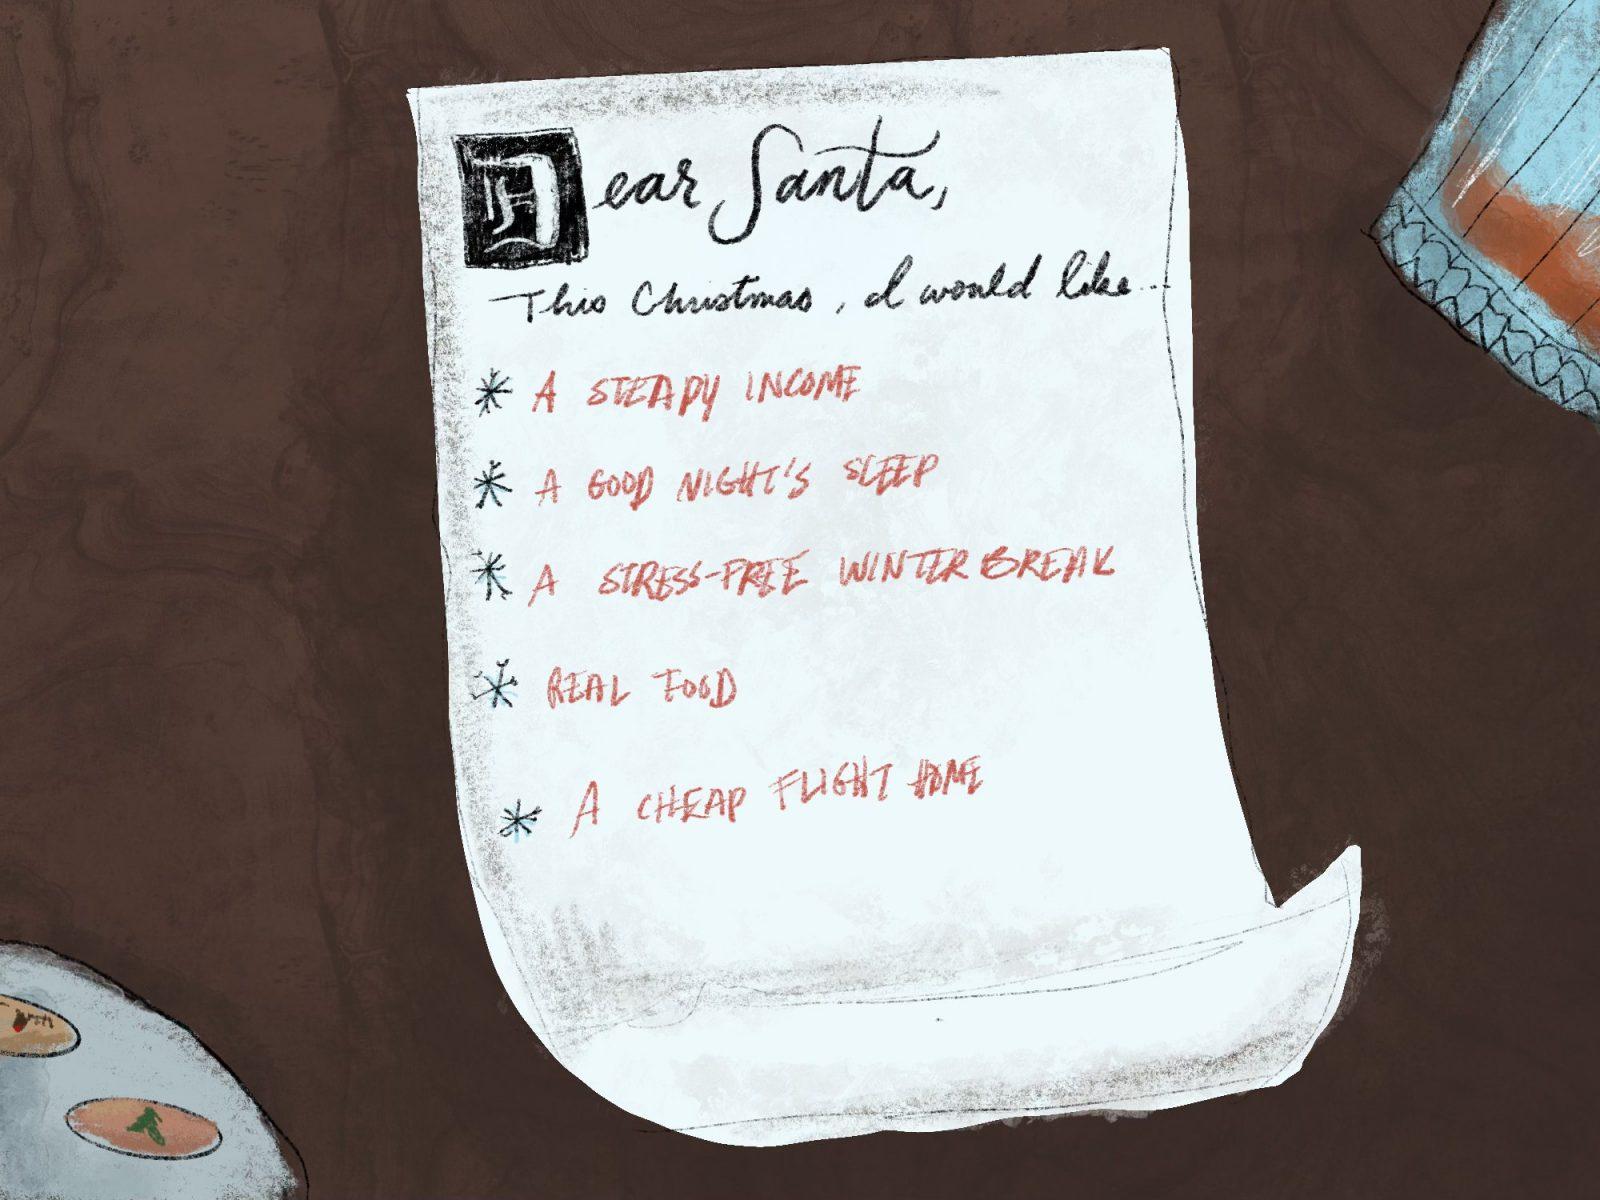 Dear Santa,
This Christmas, I would like...
A STEADY INCOME
A GOOD NIGHT'S SLEEP
A STRESS-FREE WINTER BREAK
REAL FOOD
A CHEAP FLIGHT HOME